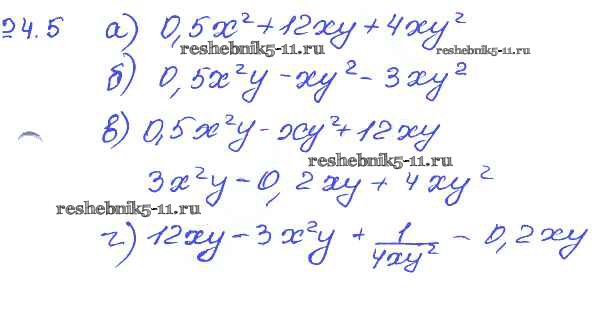 24.5 а) 0,5x² + 12xy + 4xy²
reshebnik5-11.ru reshebnik5-11.ru
б) 0,5x²y - xy² - 3xy²
в) 0,5x²y - xy² + 12xy
reshebnik5-11.ru
3x²y - 0,2xy + 4xy²
reshebnik5-11.ru
г) 12xy - 3x²y + 1/4xy² - 0,2xy